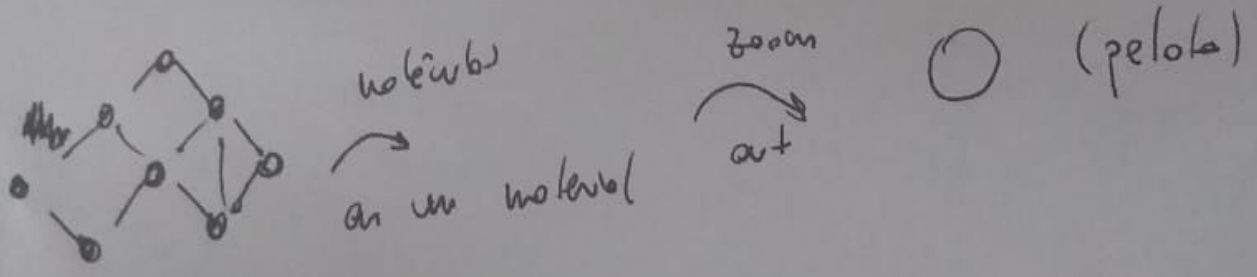 moléculas
en un material
zoom
out
(pelota)